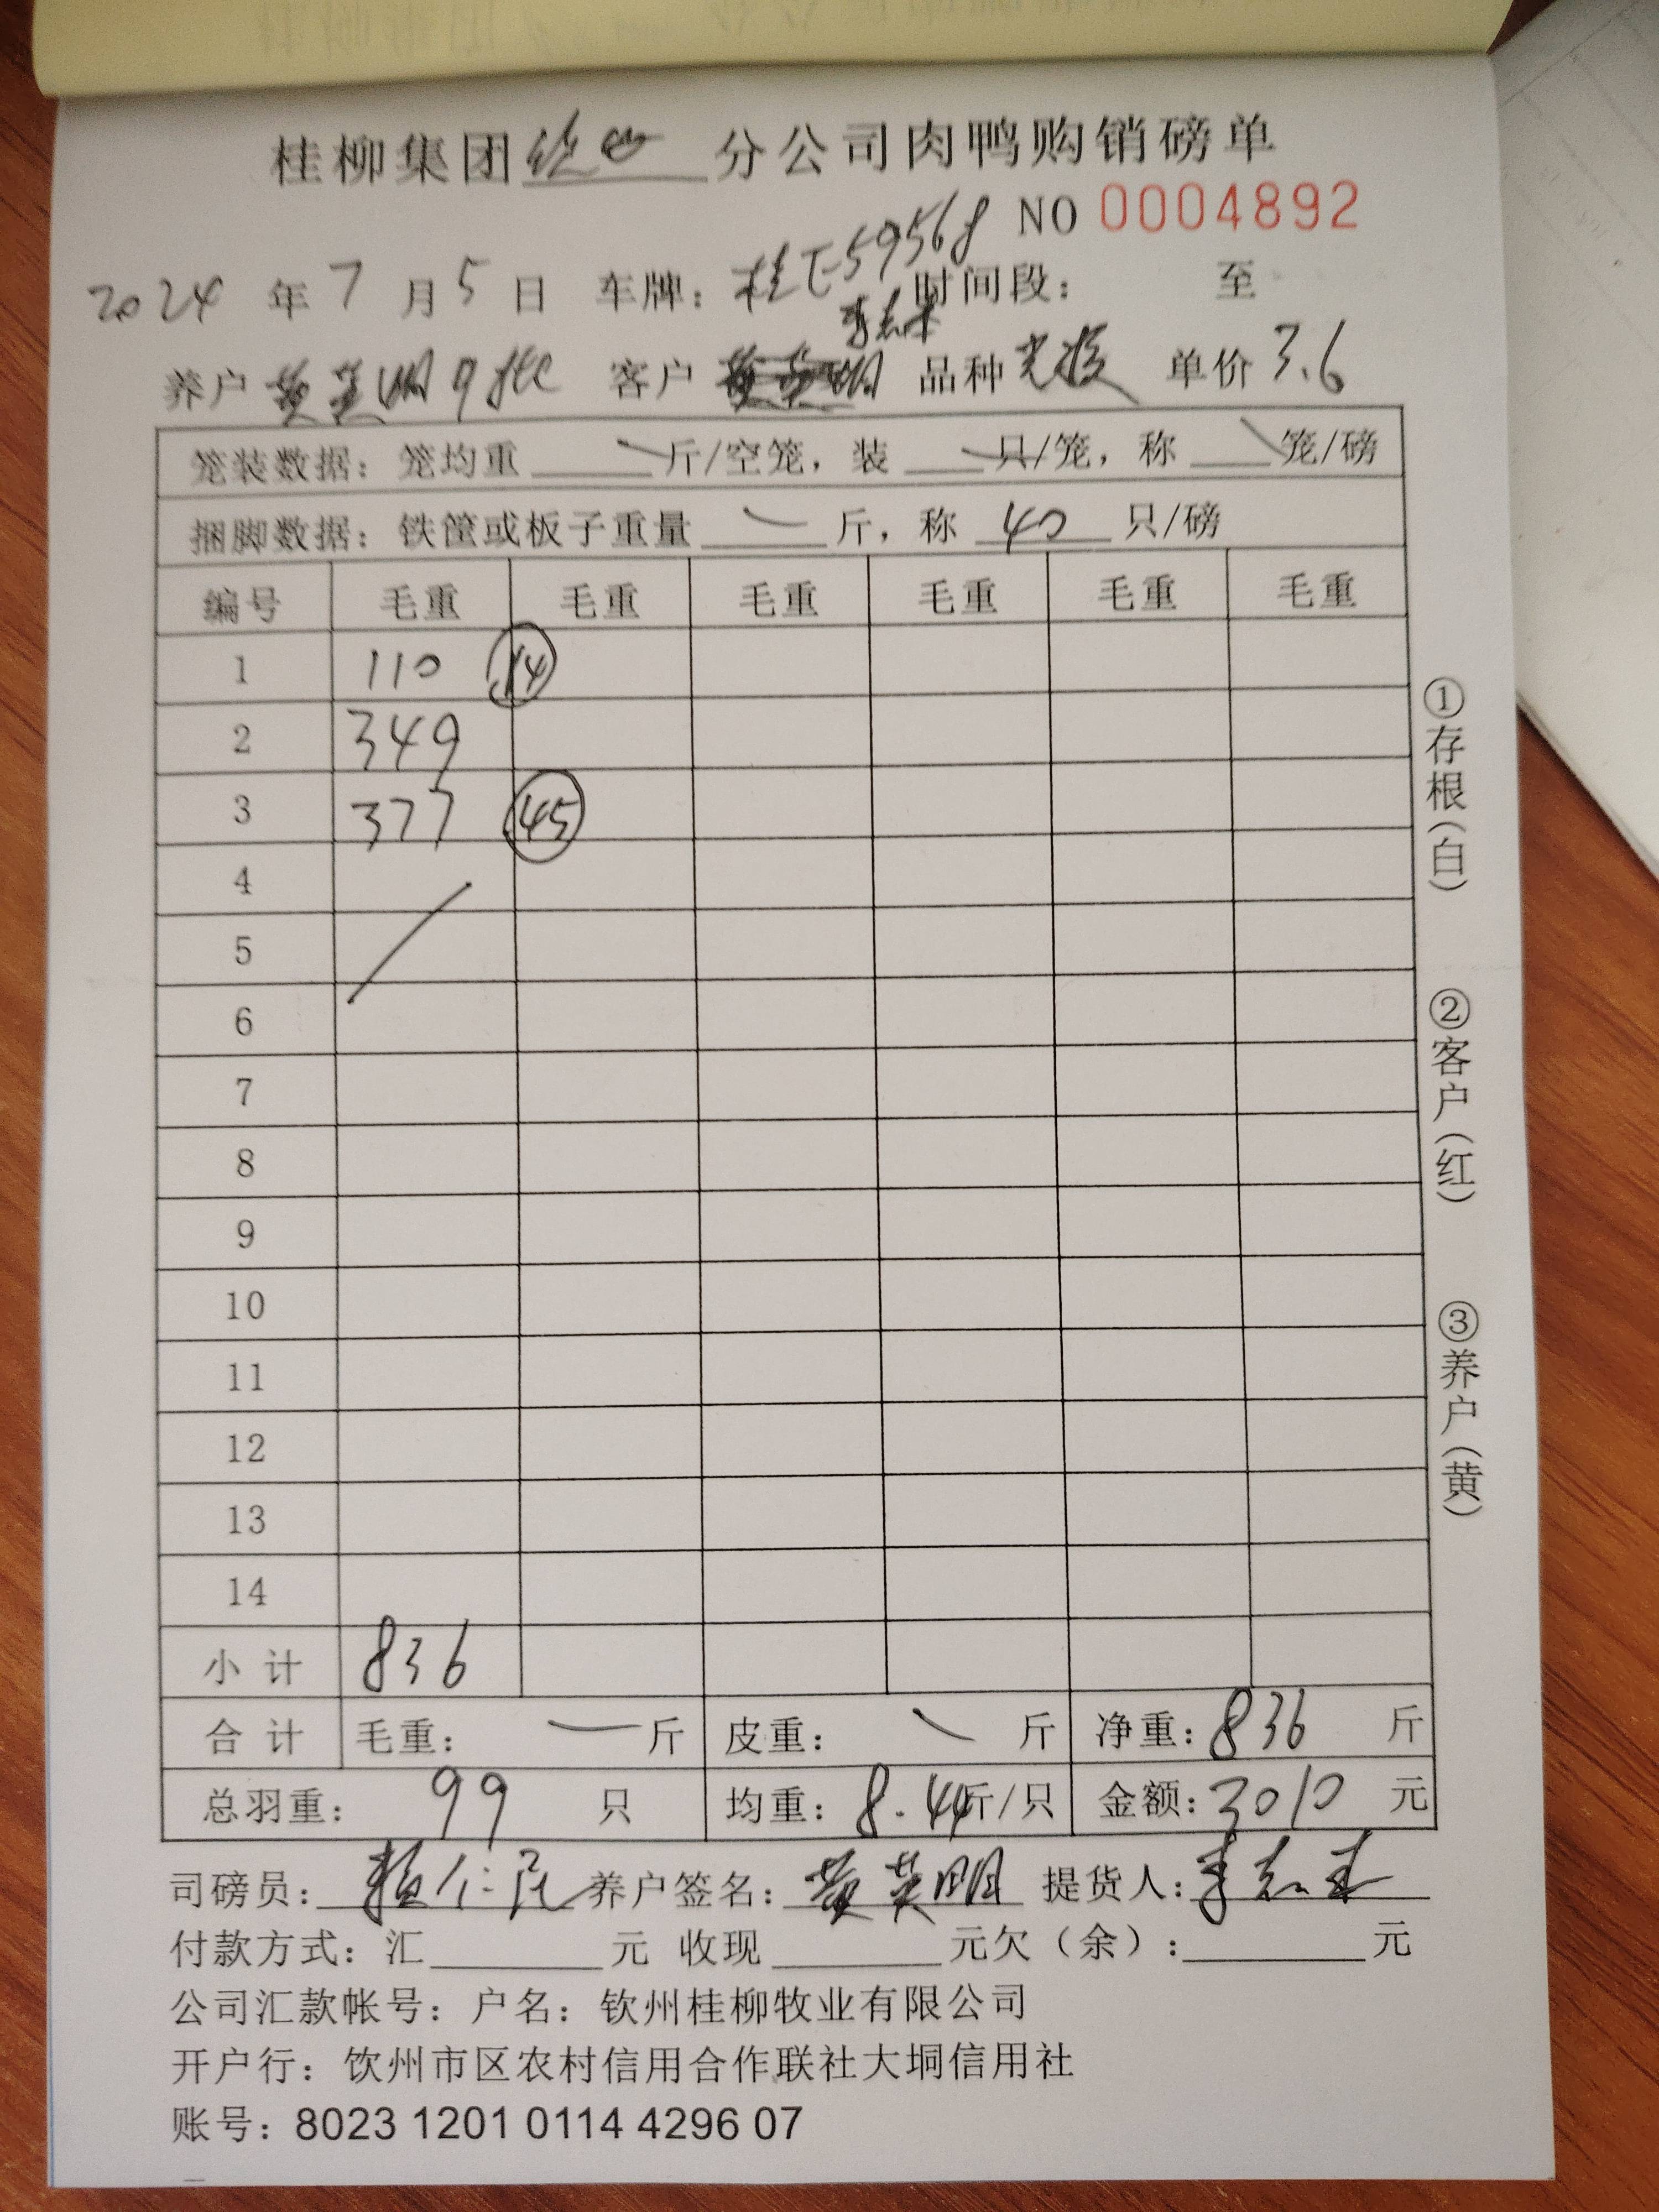 桂柳集团 分公司肉鸭购销磅单
NO 0004892
2024 年 7 月 5 日 车牌: 桂E59568 时间段: 至
养户 黄英明 9批 客户 李志 品种 单价 3.6
笼装数据: 笼均重 斤/空笼, 装 只/笼, 称 笼/磅
捆脚数据: 铁筐或板子重量 斤, 称 40 只/磅
编号 毛重 毛重 毛重 毛重 毛重 毛重
1 110 14
2 349
3 377 45
4
5
6
7
8
9
10
11
12
13
14
小计 836
合计 毛重: 斤 皮重: 斤 净重: 836 斤
总羽重: 99 只 均重: 8.44斤/只 金额: 3010 元
司磅员: 养户签名: 黄英明 提货人: 李志
付款方式: 汇 元 收现 元欠(余): 元
公司汇款帐号: 户名: 钦州桂柳牧业有限公司
开户行: 饮州市区农村信用合作联社大垌信用社
账号: 8023 1201 0114 4296 07
①存根(白)
②客户(红)
③养户(黄)